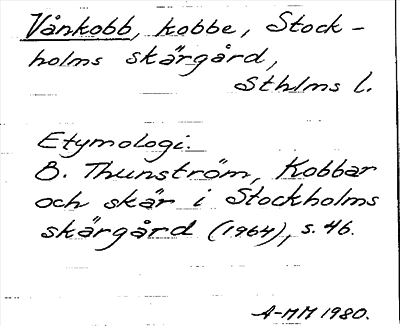 Vånkobb, kobbe, Stock-
holms skärgård,
Sthlms l.
Etymologi.
B. Thunström, Kobbar
och skär i Stockholms
skärgård (1964), s. 46.
A-MM 1980.